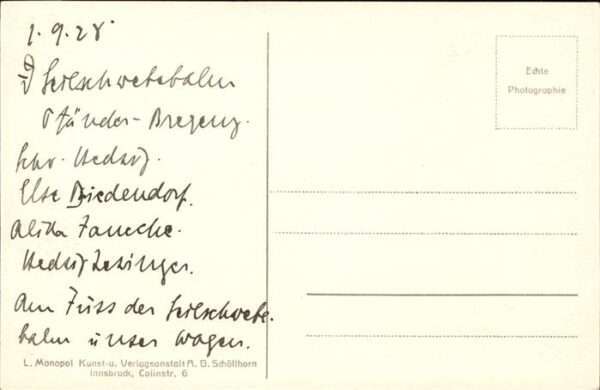 1.9.28
Seilschwebebahn
Pfänder-Bregenz.
Schw. Hedwig.
Else Diedendorf.
Alida
Hedwig
Am Fuss der Seilschwebe-
bahn unser Wagen.
L. Monopol Kunst-u. Verlagsanstalt A. G. Schöllhorn
Innsbruck, Colinstr. 6
Echte
Photographie